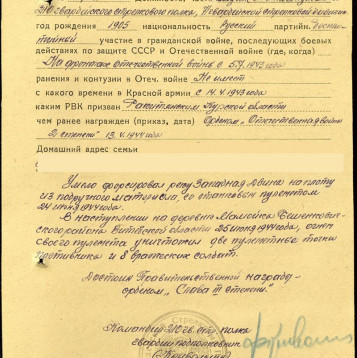 210 гвардейского стрелкового полка, гвардейской стрелковой дивизии
год рождения 1905 национальность Русский партийн.
участие в гражданской войне, последующих боевых
действиях по защите СССР и Отечественной войне (где, когда)
На фронтах отечественной войны с 5.7.1943 года
ранения и контузии в Отеч. войне Не имеет
с какого времени в Красной армии с 14.4.1943 года
каким РВК призван Ракитянским Курской области
чем ранее награжден (приказ, дата) Орденом „Отечественная война
2 степени" 13.4.1944 года
Домашний адрес семьи
Умело форсировал реку Западная Двина на плоту
из подручного материала, со станковым пулеметом
24 июня 1944 года.
В наступлении на деревню Бешенковичского
района Витебской области 25 июня 1944 года, огнем
своего пулемета уничтожил две пулеметные точки
противника и 8 вражеских солдат.
Достоин Правительственной награды-
орденом „Слава III степени"
Командир 210 гв. стр. полка
гвардии подполковник